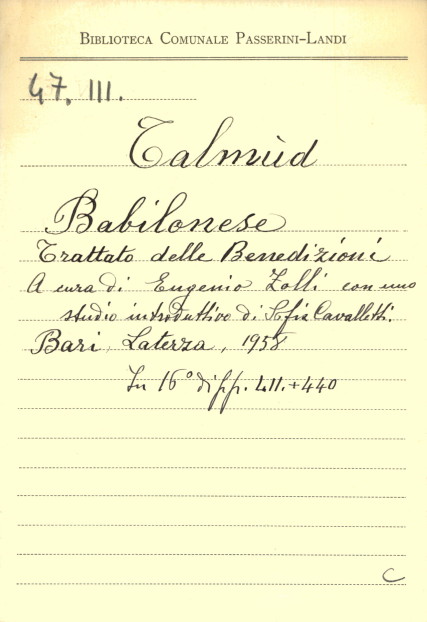 BIBLIOTECA COMUNALE PASSERINI-LANDI
47. III.
Talmùd
Babilonese
Trattato delle Benedizioni
A cura di Eugenio Zolli con uno
studio introduttivo di Sofia Cavalletti.
Bari, Laterza, 1958
In 16° di pp. LII.+440
C